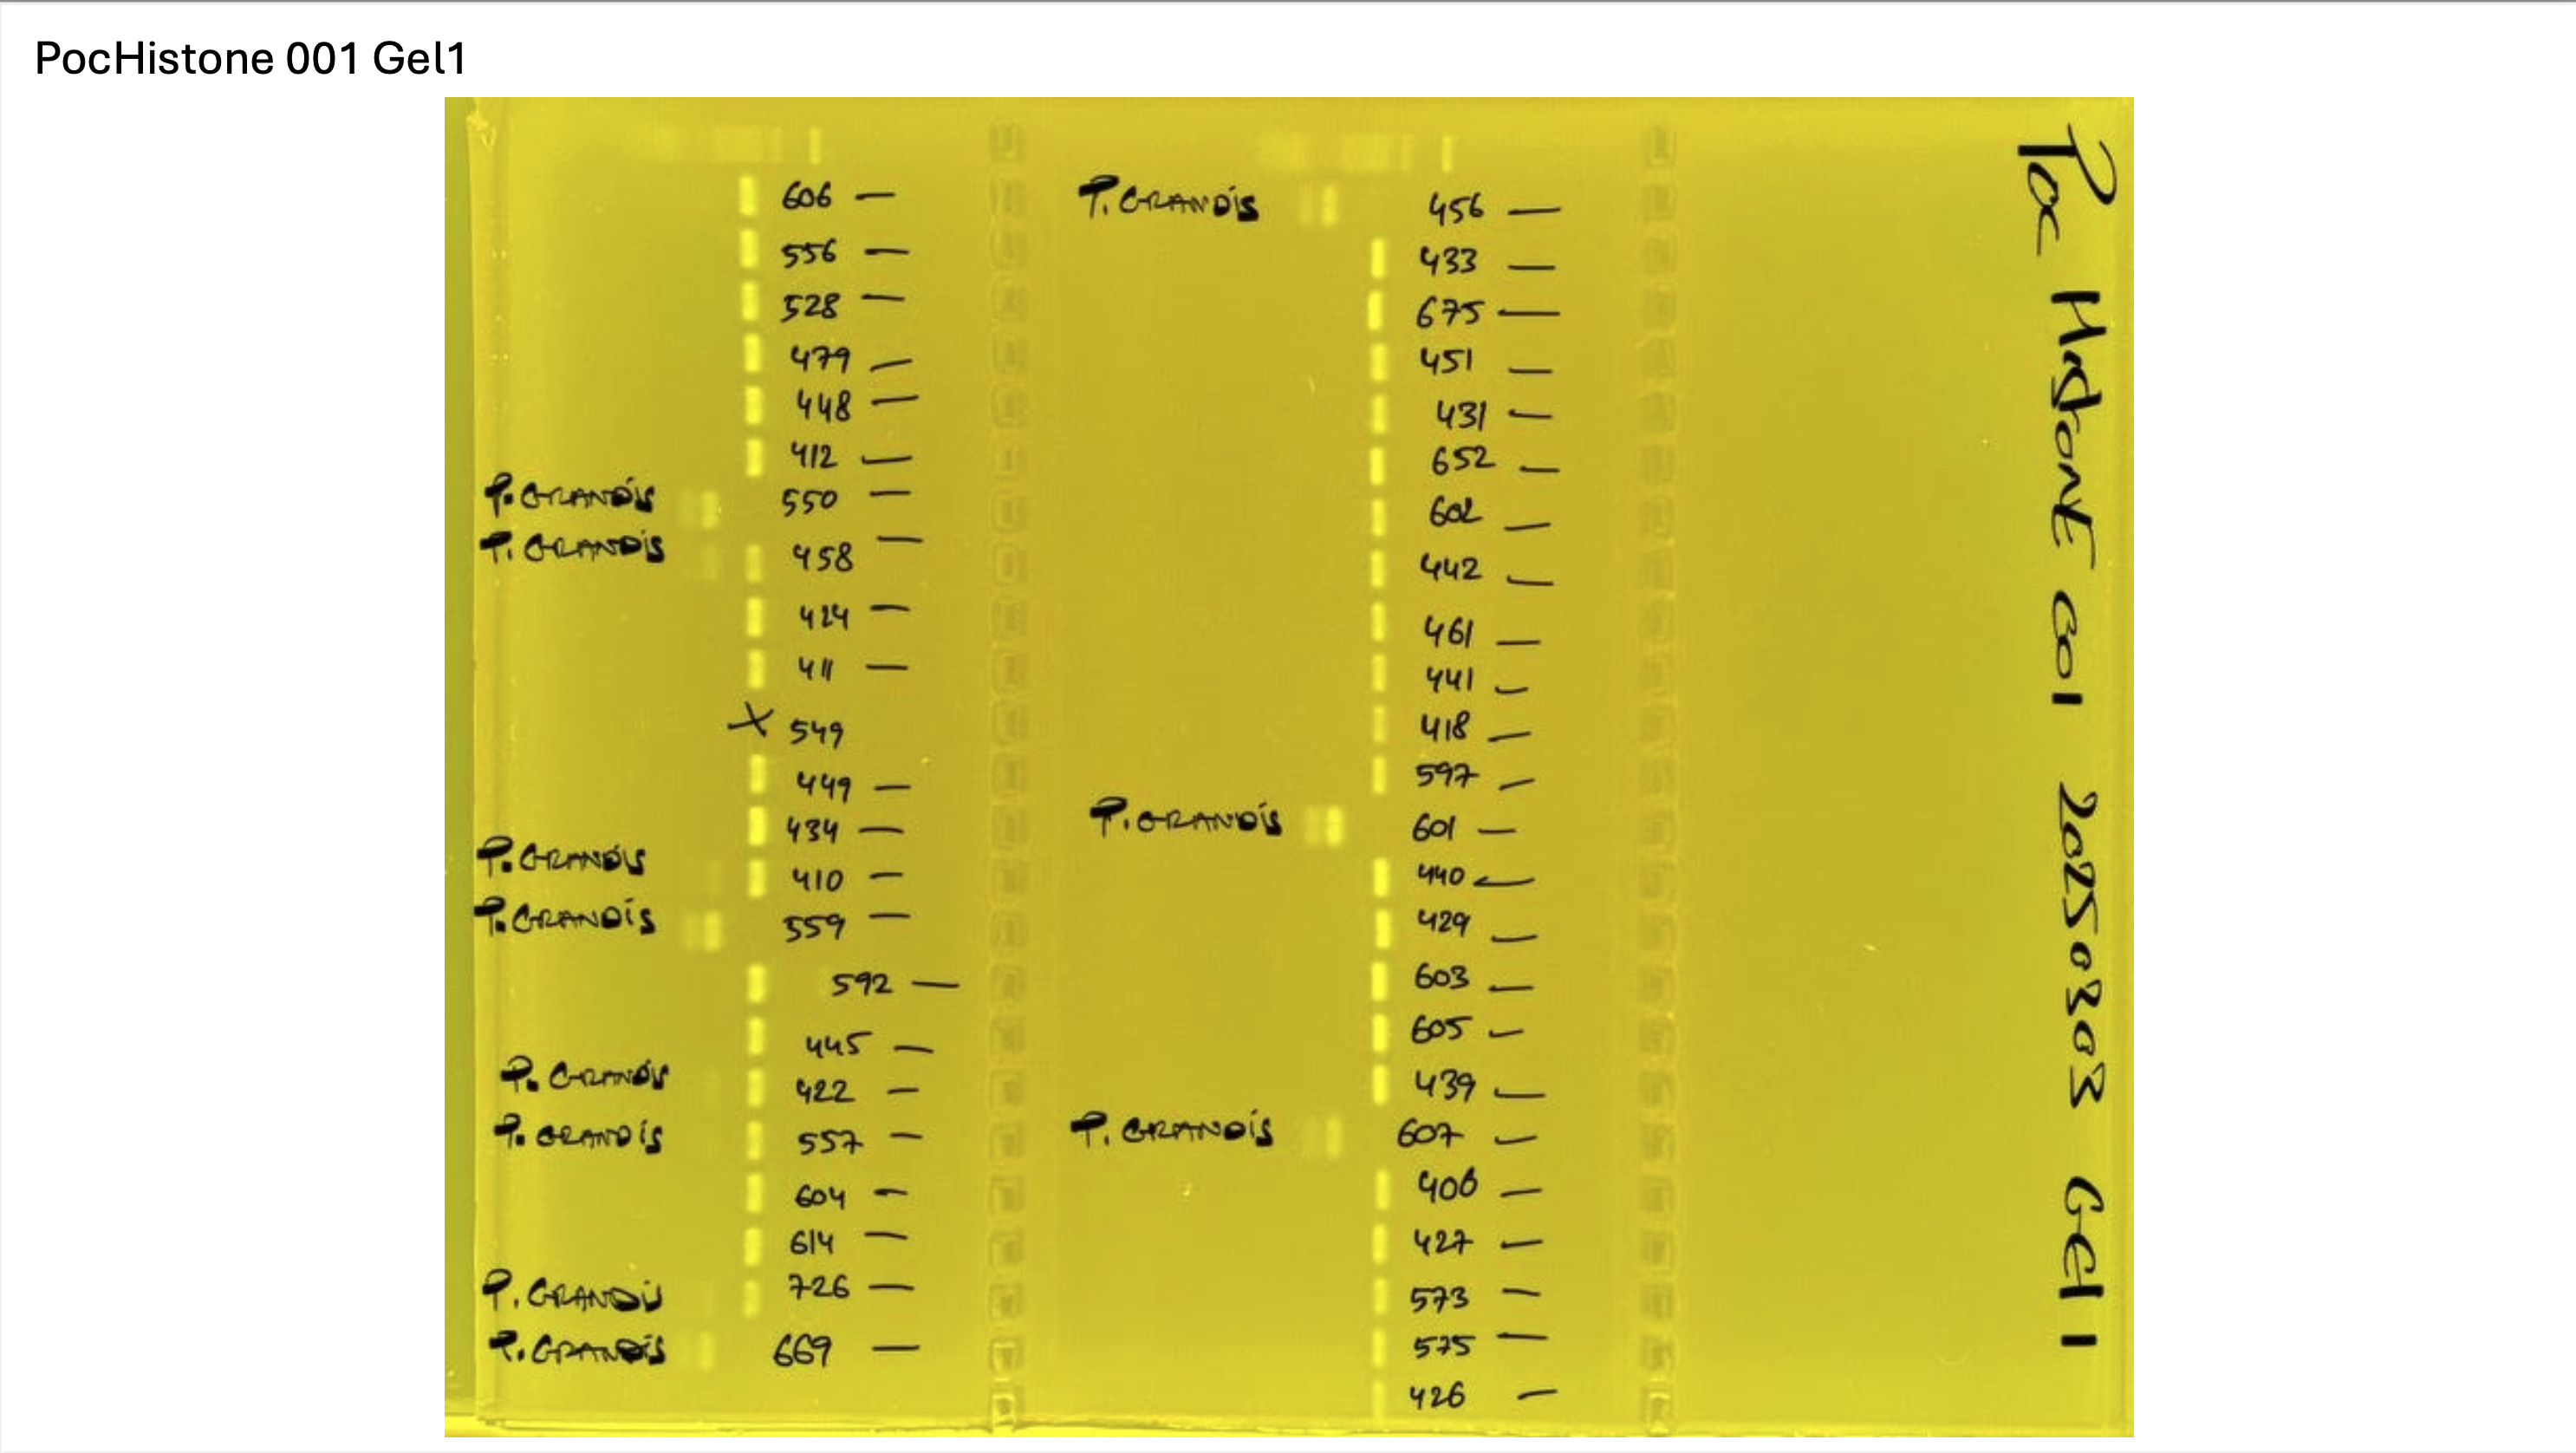 PocHistone 001 Gel1
606
556
528
479
448
412
P. GRANDIS 550
P. GRANDIS 458
424
411
X 549
449
434
P. GRANDIS 410
P. GRANDIS 559
592
445
P. GRANDIS 422
P. GRANDIS 557
604
614
P. GRANDIS 726
P. GRANDIS 669
P. GRANDIS 456
433
675
451
431
652
602
442
461
441
418
597
P. GRANDIS 601
440
429
603
605
439
P. GRANDIS 607
406
427
573
575
426
Poc HistonE 001 20250303 GEl 1